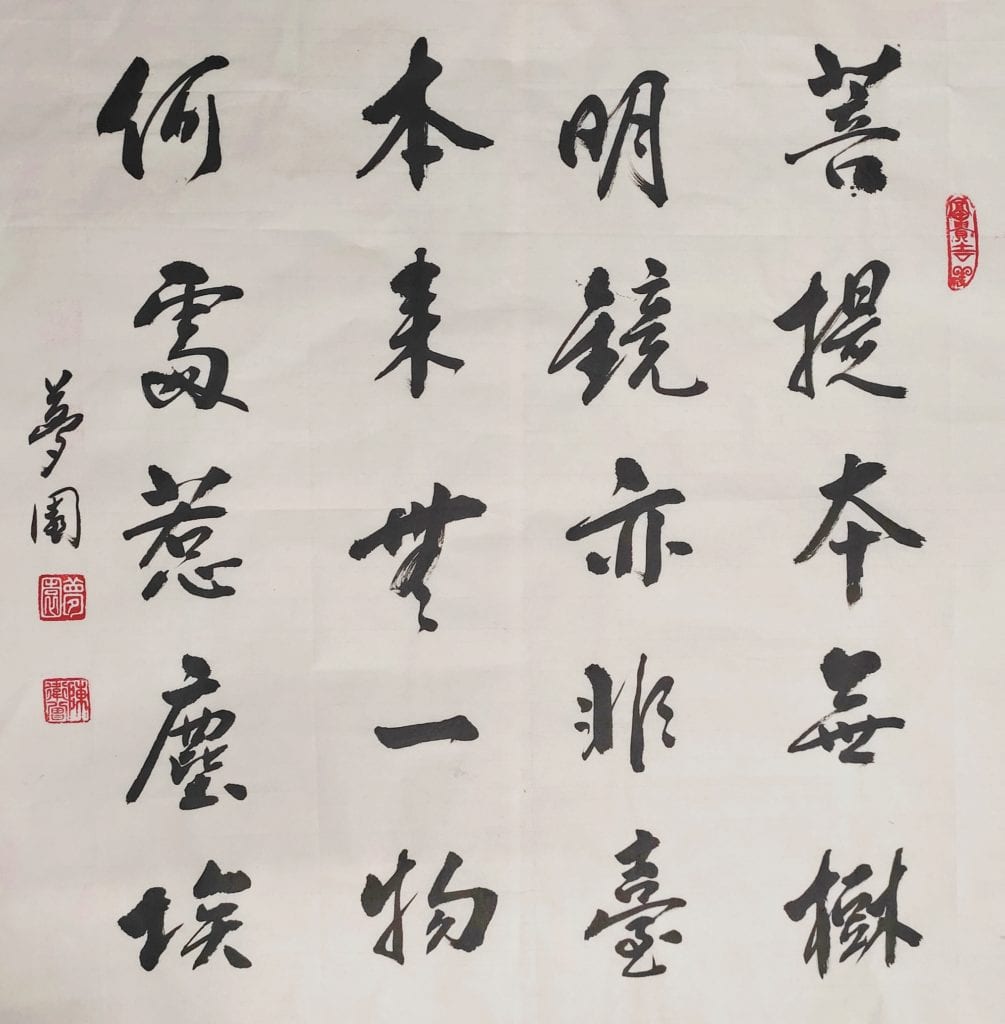 菩提本無樹
明鏡亦非臺
本来無一物
何處惹塵埃
夢園
夢園